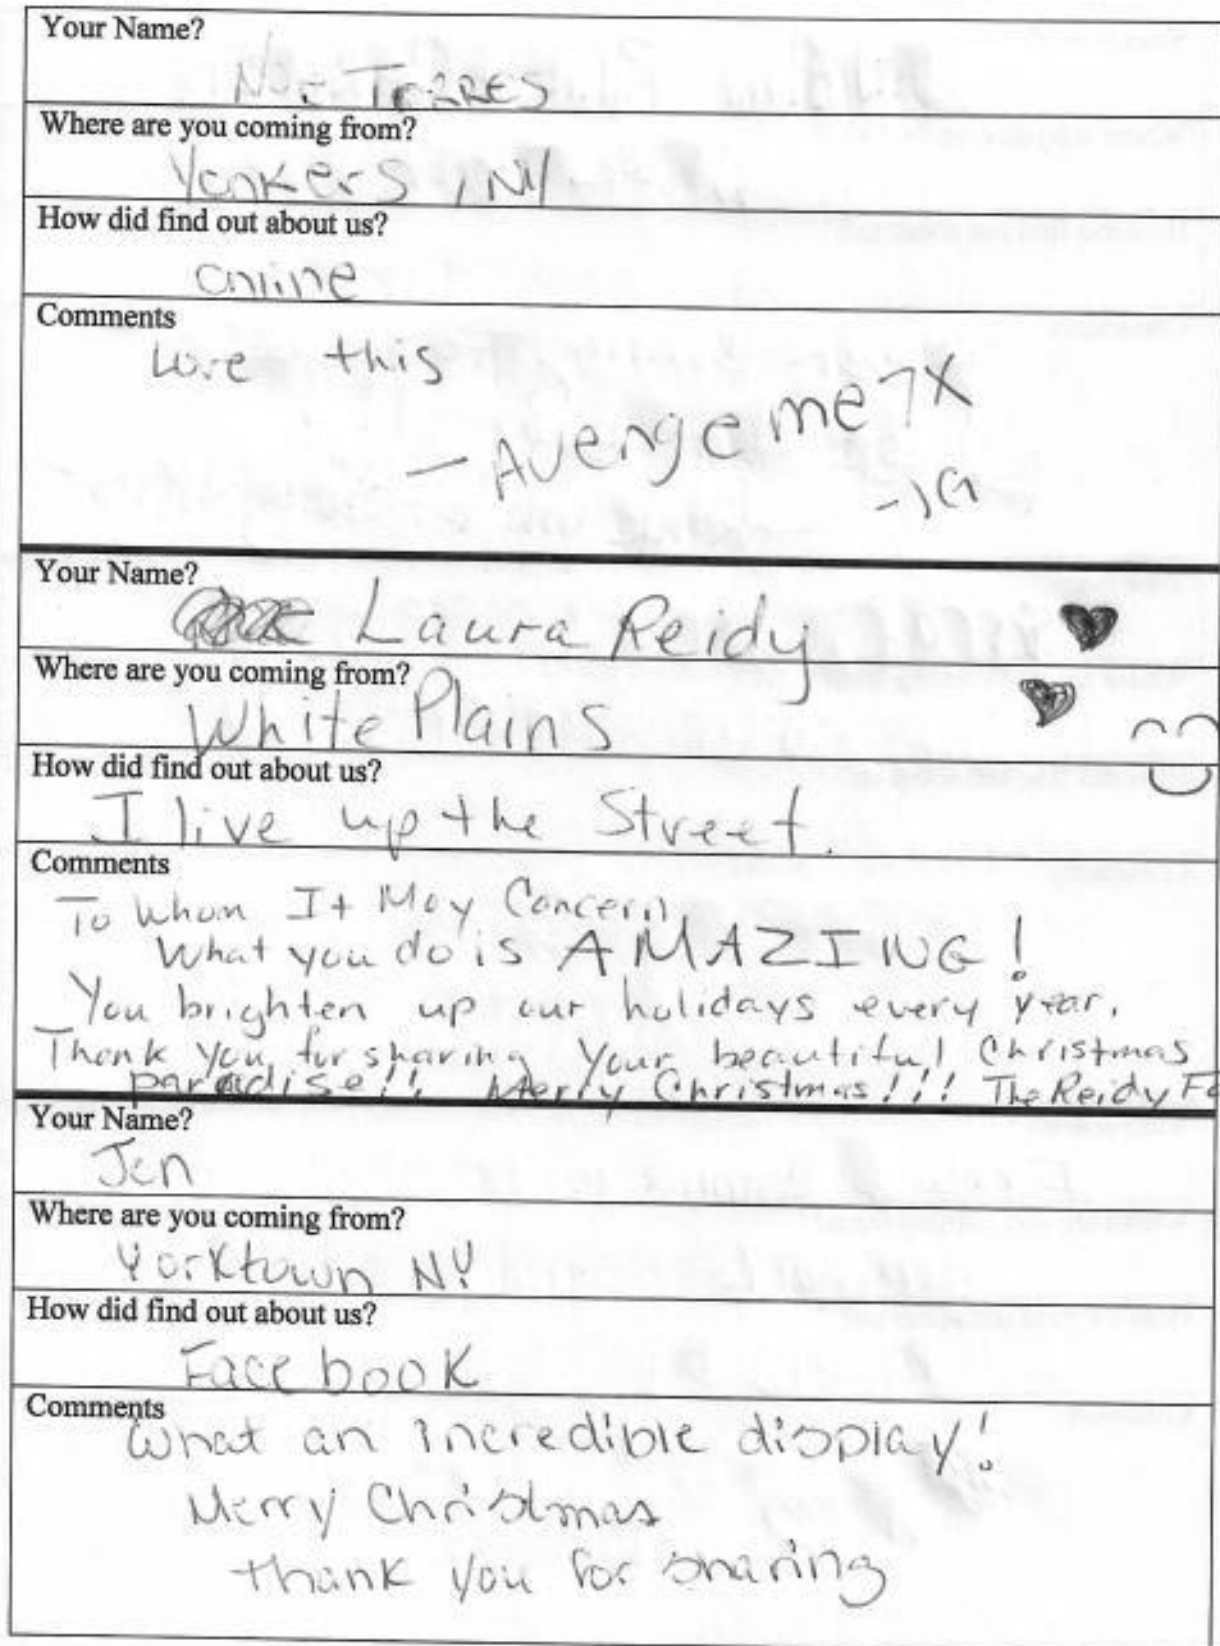 Your Name?
TORRES
Where are you coming from?
Yonkers, NY
How did find out about us?
Online
Comments
Love this
- Avenge me 7X
- JG
Your Name?
Laura Reidy
Where are you coming from?
White Plains
How did find out about us?
I live up the Street.
Comments
To Whom It May Concern,
What you do is AMAZING!
You brighten up our holidays every year.
Thank you for sharing your beautiful Christmas
paradise!! Merry Christmas!!! The Reidy Fa
Your Name?
Jen
Where are you coming from?
Yorktown NY
How did find out about us?
Facebook
Comments
What an incredible display!
Merry Christmas
thank you for sharing